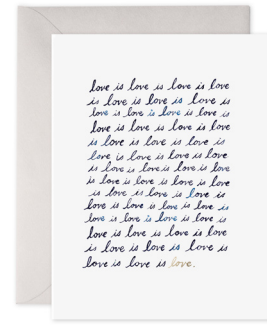 love is love is love is love
is love is love is love is
love is love is love is love
love is love is love is love
is love is love is love is
love is love is love is love
is love is love is love is love
is love is love is love is love
is love is love is love is
love is love is love is love
love is love is love is love
love is love is love is love
is love is love is love is
love is love is love.